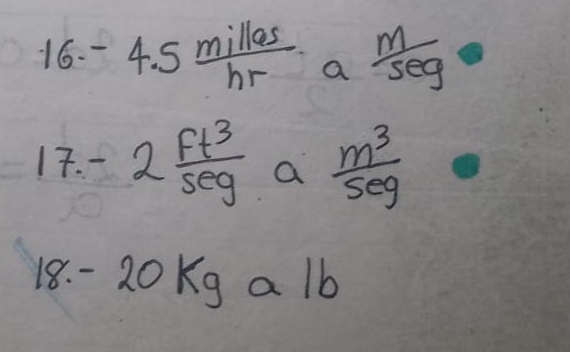 16.- 4.5 millas/hr a m/seg
17.- 2 ft³/seg a m³/seg
18.- 20 Kg a lb